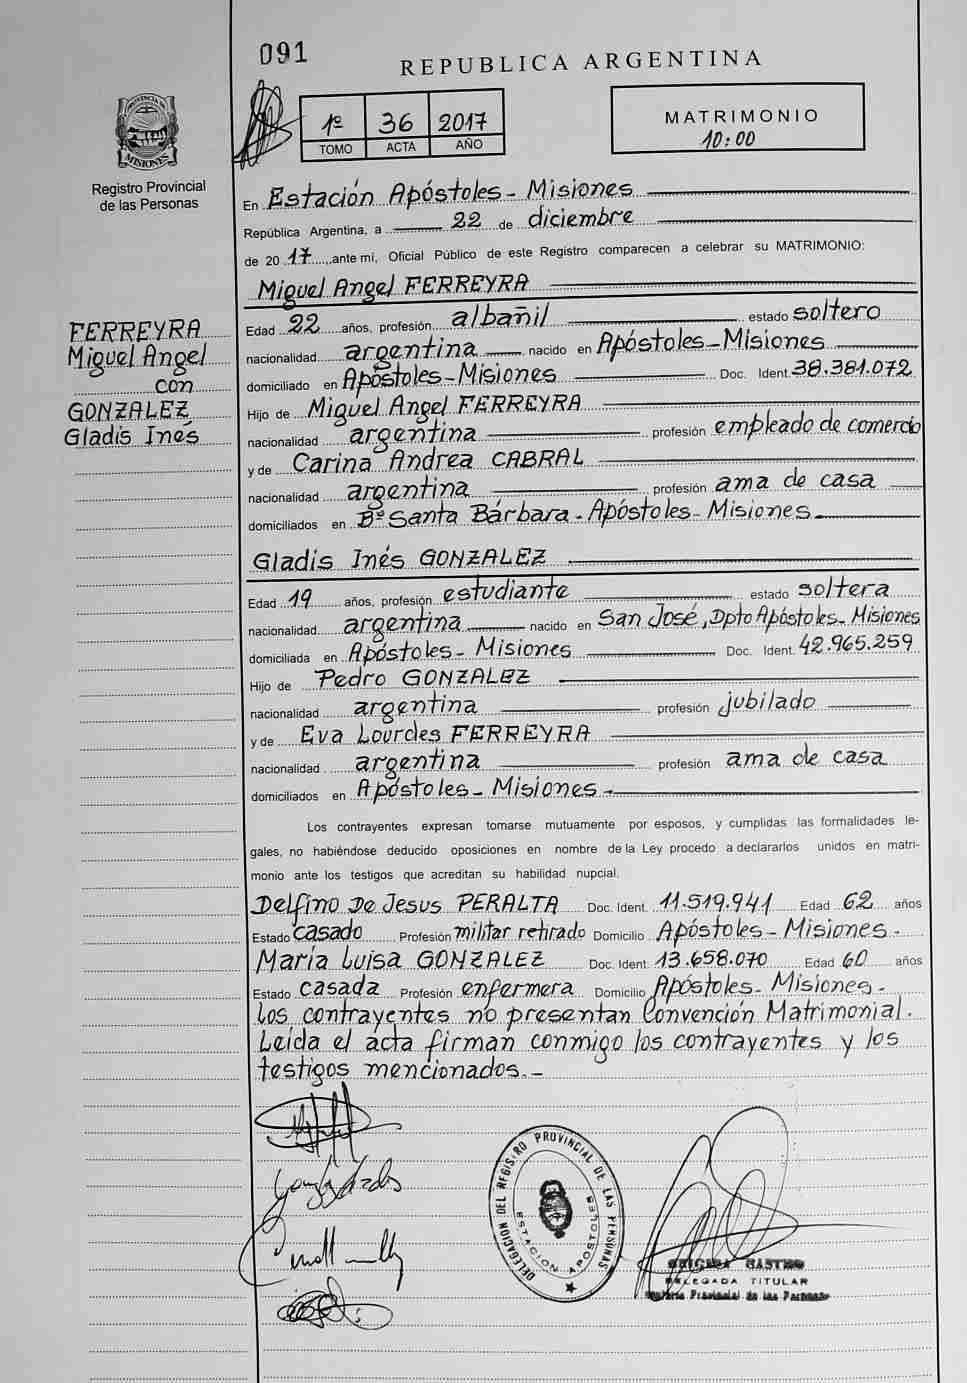 091
REPUBLICA ARGENTINA
PROVINCIA DE
MISIONES
Registro Provincial
de las Personas
1º 36 2017
TOMO ACTA AÑO
MATRIMONIO
10:00
En Estación Apóstoles - Misiones
República Argentina, a 22 de diciembre
de 20 17 ante mí, Oficial Público de este Registro comparecen a celebrar su MATRIMONIO:
Miguel Angel FERREYRA
FERREYRA
Miguel Angel
con
GONZALEZ
Gladis Inés
Edad 22 años, profesión albañil estado soltero
nacionalidad argentina nacido en Apóstoles - Misiones
domiciliado en Apóstoles - Misiones Doc. Ident. 38.381.072
Hijo de Miguel Angel FERREYRA
nacionalidad argentina profesión empleado de comercio
y de Carina Andrea CABRAL
nacionalidad argentina profesión ama de casa
domiciliados en Bº Santa Bárbara - Apóstoles - Misiones
Gladis Inés GONZALEZ
Edad 19 años, profesión estudiante estado soltera
nacionalidad argentina nacido en San José, Dpto Apóstoles - Misiones
domiciliada en Apóstoles - Misiones Doc. Ident. 42.965.259
Hijo de Pedro GONZALEZ
nacionalidad argentina profesión jubilado
y de Eva Lourdes FERREYRA
nacionalidad argentina profesión ama de casa
domiciliados en Apóstoles - Misiones -
Los contrayentes expresan tomarse mutuamente por esposos, y cumplidas las formalidades le-
gales, no habiéndose deducido oposiciones en nombre de la Ley procedo a declararlos unidos en matri-
monio ante los testigos que acreditan su habilidad nupcial.
Delfino De Jesus PERALTA Doc. Ident. 11.519.941 Edad 62 años
Estado casado Profesión militar retirado Domicilio Apóstoles - Misiones -
María Luisa GONZALEZ Doc. Ident. 13.658.070 Edad 60 años
Estado casada Profesión enfermera Domicilio Apóstoles - Misiones -
los contrayentes no presentan Convención Matrimonial.
Leída el acta firman conmigo los contrayentes y los
testigos mencionados. -
DELEGACION DEL REGISTRO PROVINCIAL DE LAS PERSONAS
ESTACION APOSTOLES
CASTRO
DELEGADA TITULAR
Provincial de las Personas